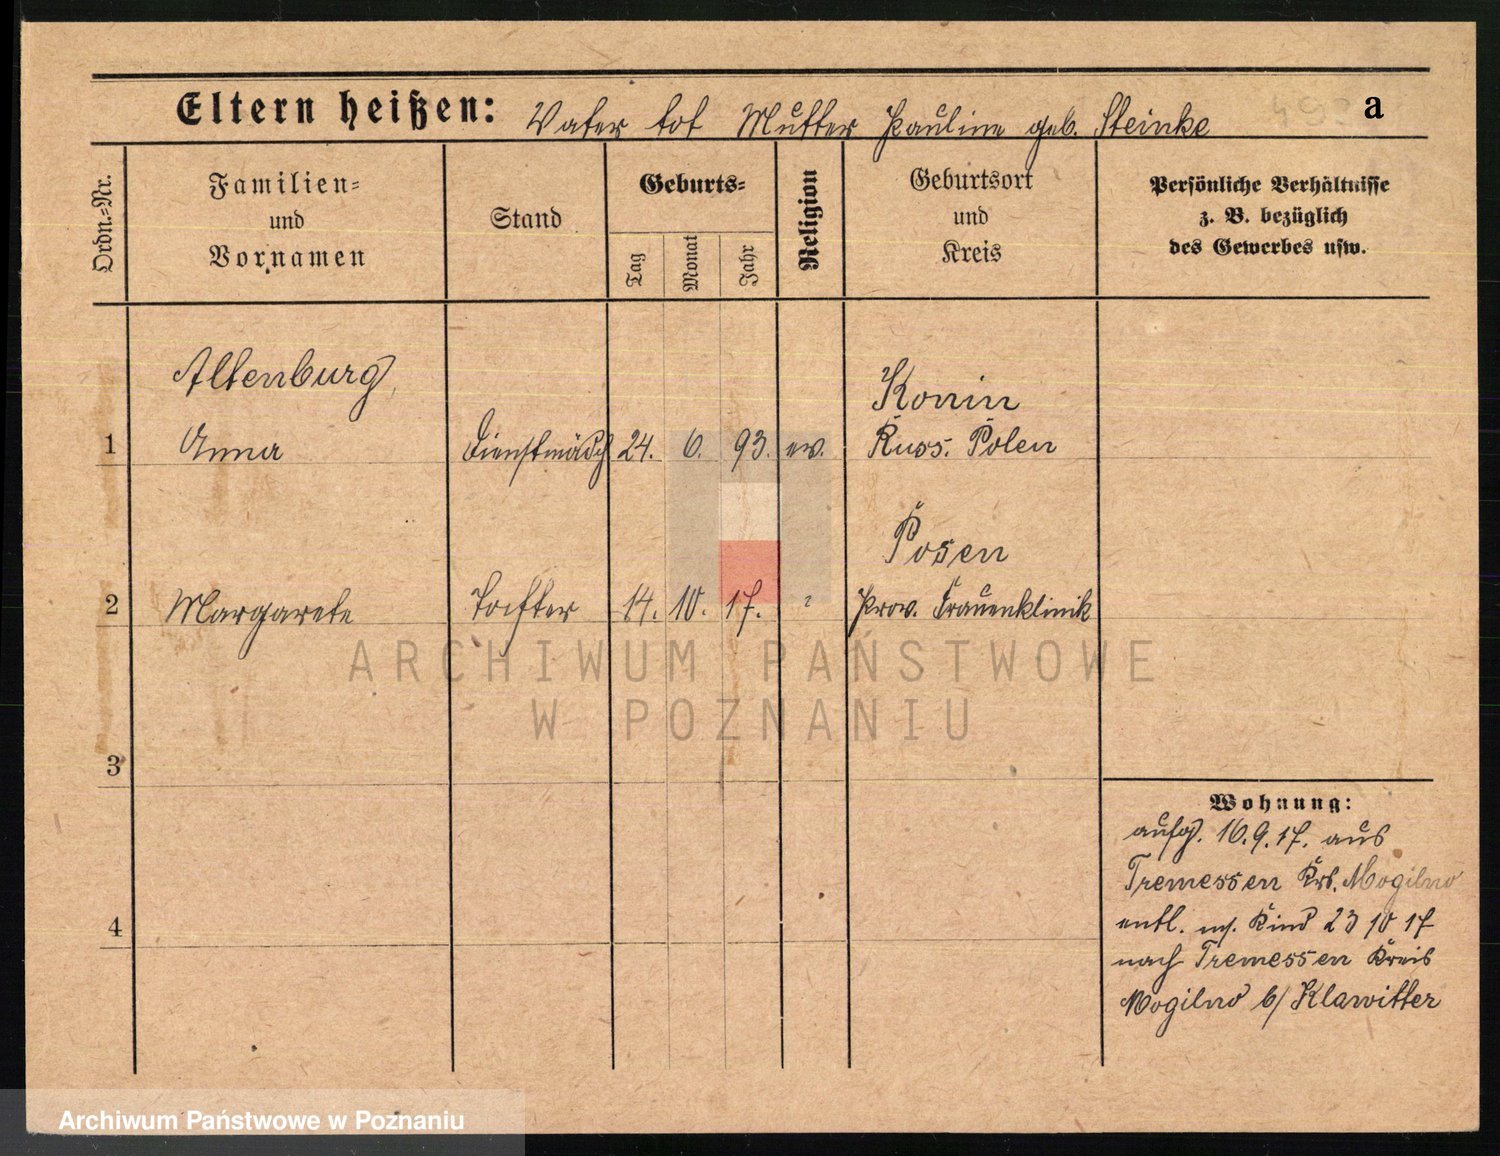 Eltern heißen: Vater tot Mutter Pauline geb. Steinke
a
Ordn.=Nr.
Familien=
und
Vornamen
Stand
Geburts=
Tag
Monat
Jahr
Religion
Geburtsort
und
Kreis
Persönliche Verhältnisse
z. B. bezüglich
des Gewerbes usw.
Altenburg,
Konin
1 Anna Dienstmädch 24. 6. 93. ev. Russ. Polen
Posen
2 Margarete Tochter 14. 10. 17. Prov. Frauenklinik
ARCHIWUM PAŃSTWOWE
W POZNANIU
3
Wohnung:
aufg. 16.9.17. aus
Tremessen Krs. Mogilno
4
entl. m. Kind 23 10 17
nach Tremessen Kreis
Mogilno b/ Klawitter
Archiwum Państwowe w Poznaniu